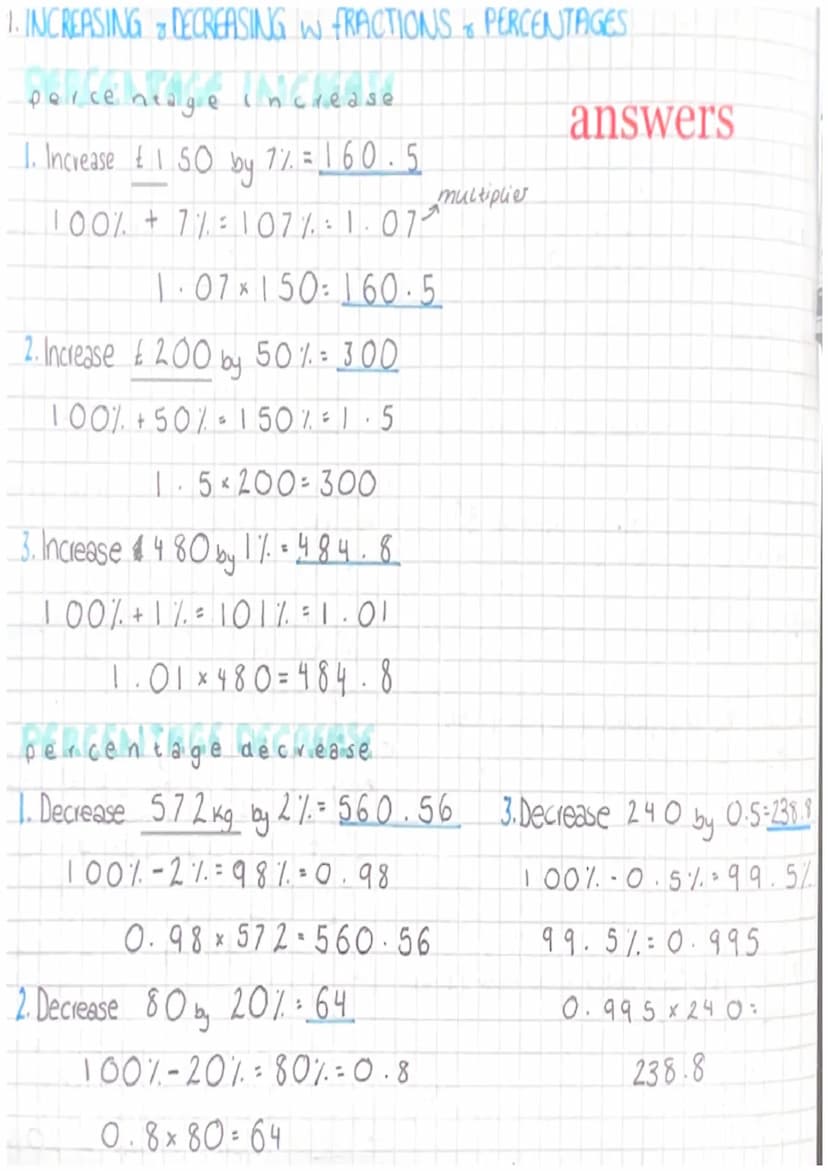 1. INCREASING & DECREASING W FRACTIONS & PERCENTAGES
PERCENTAGE INCREASE
percentage increase
answers
1. Increase £150 by 7% = 160.5
multiplier
100% + 7% = 107% = 1.07
1.07 × 150 = 160.5
2. Increase £200 by 50% = 300
100% + 50% = 150% = 1.5
1.5 × 200 = 300
3. Increase 480 by 1% = 484.8
100% + 1% = 101% = 1.01
1.01 × 480 = 484.8
PERCENTAGE DECREASE
percentage decrease
1. Decrease 572kg by 2% = 560.56
100% - 2% = 98% = 0.98
0.98 × 572 = 560.56
2. Decrease 80 by 20% = 64
100% - 20% = 80% = 0.8
0.8 × 80 = 64
3. Decrease 240 by 0.5 = 238.8
100% - 0.5% = 99.5%
99.5% = 0.995
0.995 × 240 =
238.8